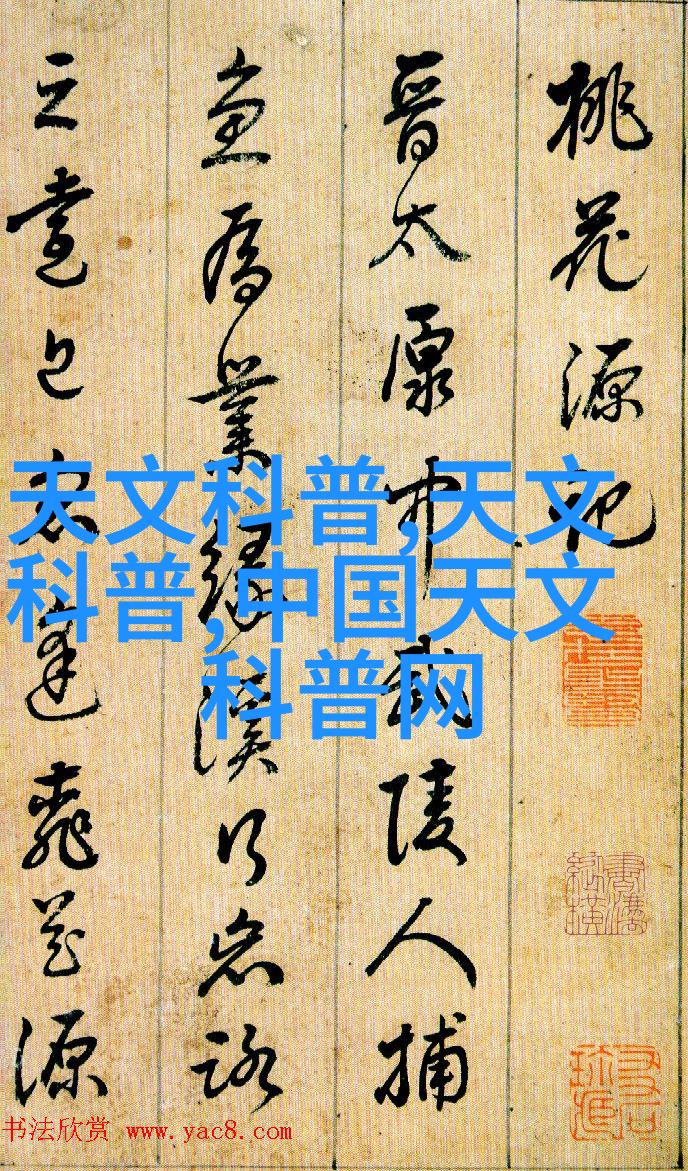 桃花源記
晉太原中武陵人捕
魚為業緣溪行忘路
之遠近忽逢桃花源
天文科普,天文
科普,中国天文
科普网
书法欣赏 www.yac8.com